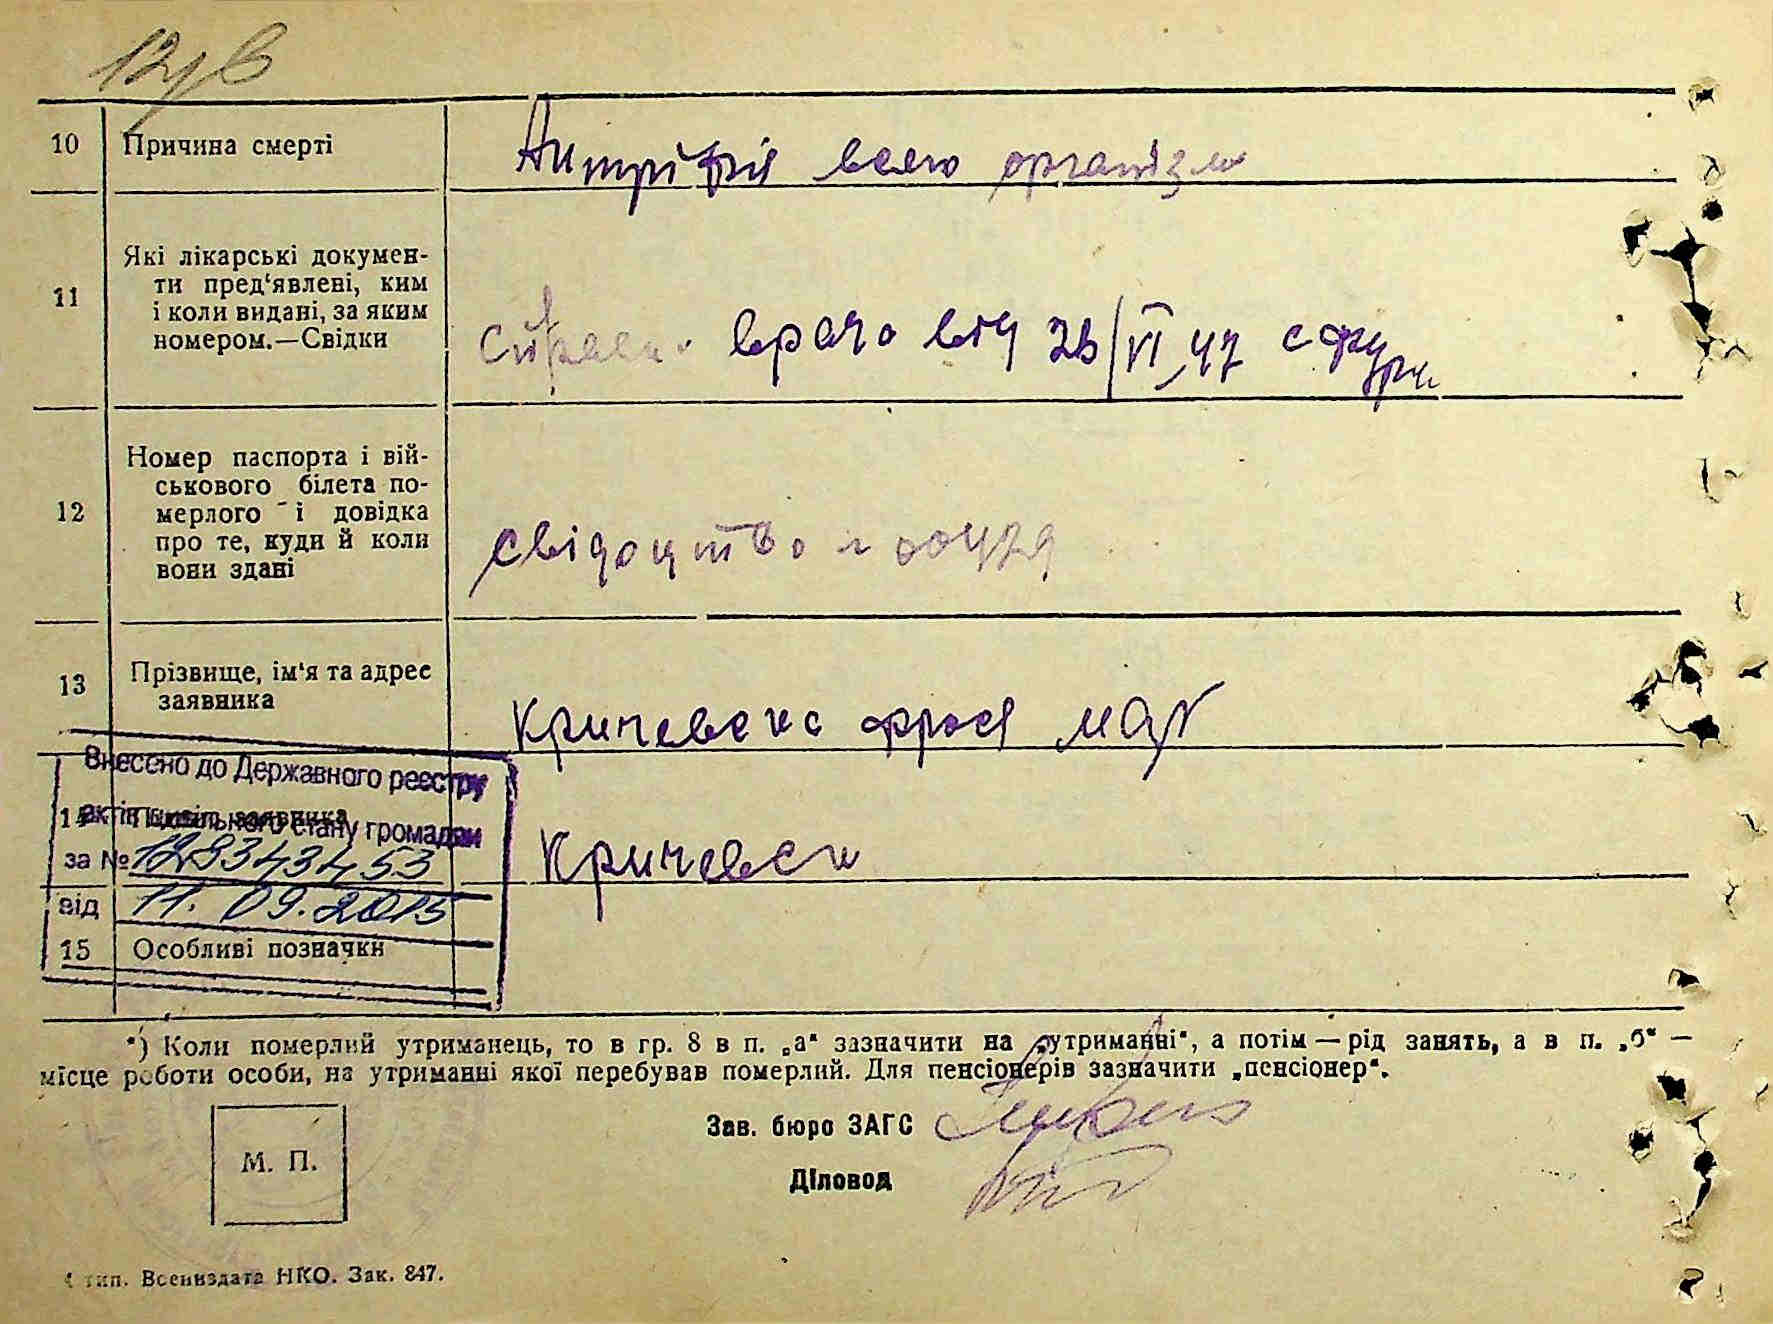 10 Причина смерті
всего організм
11 Які лікарські докумен-
ти пред‘явлені, ким
і коли видані, за яким
номером.—Свідки
врача від 23/VI 47
12 Номер паспорта і вій-
ськового білета по-
мерлого і довідка
про те, куди й коли
вони здані
свідоцтво
13 Прізвище, ім‘я та адрес
заявника
Кричевска Фрося мат
Внесено до Державного реєстру
актів цивільного стану громадян
за № 128343453
від 11. 09. 2015
14 Підпис заявника
Кричевск
15 Особливі позначки
*) Коли померлий утриманець, то в гр. 8 в п. „а“ зазначити на „утриманні“, а потім — рід занять, а в п. „б“ —
місце роботи особи, на утриманні якої перебував померлий. Для пенсіонерів зазначити „пенсіонер“.
Зав. бюро ЗАГС
М. П.
Діловод
тип. Воениздата НКО. Зак. 847.